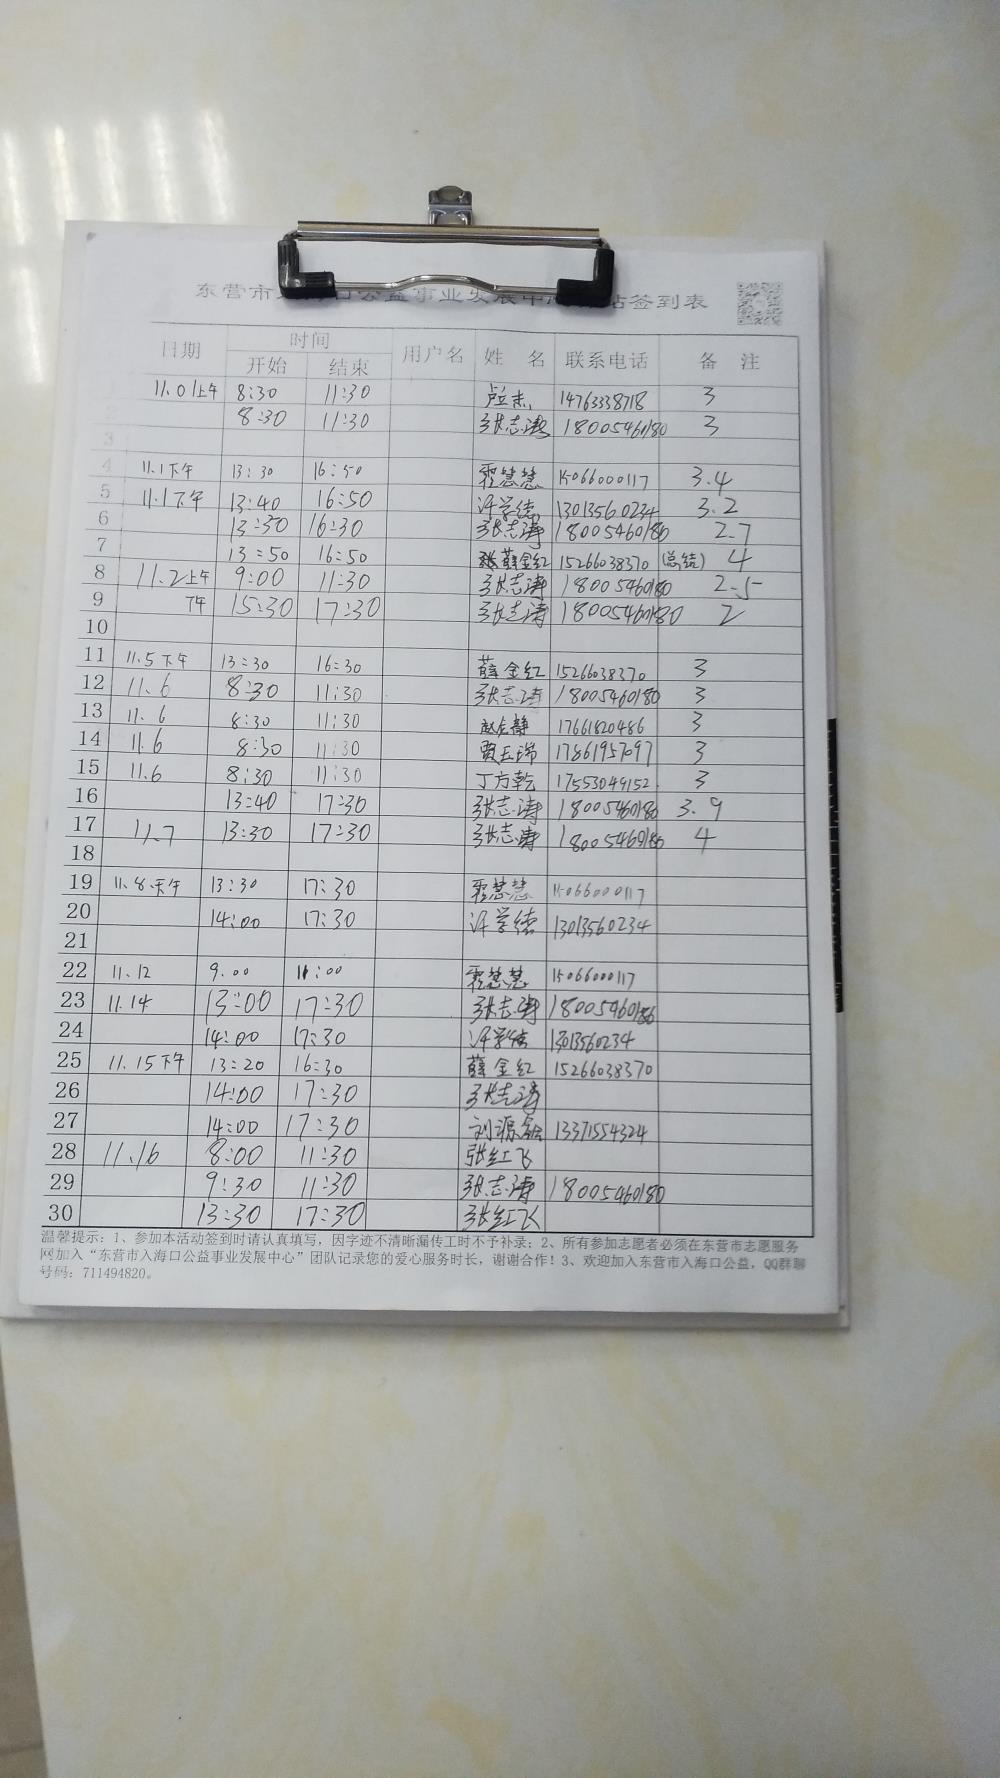 东营市 签到表
日期 时间 用户名 姓 名 联系电话 备 注
开始 结束
11.01上午 8:30 11:30 14763338718 3
8:30 11:30 张志涛 18005460180 3
3
4 11.1下午 13:30 16:50 翟慧慧 15066000117 3.4
5 11.1下午 13:40 16:50 许学德 13013560234 3.2
6 13:30 16:30 张志涛 18005460180 2.7
7 13:50 16:50 薛金红 15266038370 (总结) 4
8 11.2上午 9:00 11:30 张志涛 18005460180 2.5
9 下午 15:30 17:30 张志涛 18005460180 2
10
11 11.5下午 13:30 16:30 薛金红 15266038370 3
12 11.6 8:30 11:30 张志涛 18005460180 3
13 11.6 8:30 11:30 17661820486 3
14 11.6 8:30 11:30 贾玉瑞 17861957097 3
15 11.6 8:30 11:30 丁方乾 17553049152 3
16 13:40 17:30 张志涛 18005460180 3.9
17 11.7 13:30 17:30 张志涛 18005460180 4
18
19 11.8.下午 13:30 17:30 翟慧慧 15066000117
20 14:00 17:30 许学德 13013560234
21
22 11.12 9:00 11:00 翟慧慧 15066000117
23 11.14 13:00 17:30 张志涛 18005460180
24 14:00 17:30 许学德 13013560234
25 11.15下午 13:20 16:30 薛金红 15266038370
26 14:00 17:30 张志涛
27 14:00 17:30 刘源 13371554324
28 11.16 8:00 11:30 张红飞
29 9:30 11:30 张志涛 18005460180
30 13:30 17:30 张红飞
温馨提示：1、参加本活动签到时请认真填写，因字迹不清晰漏传工时不予补录；2、所有参加志愿者必须在东营市志愿服务
网加入“东营市入海口公益事业发展中心”团队记录您的爱心服务时长，谢谢合作！3、欢迎加入东营市入海口公益，QQ群聊
号码：711494820。